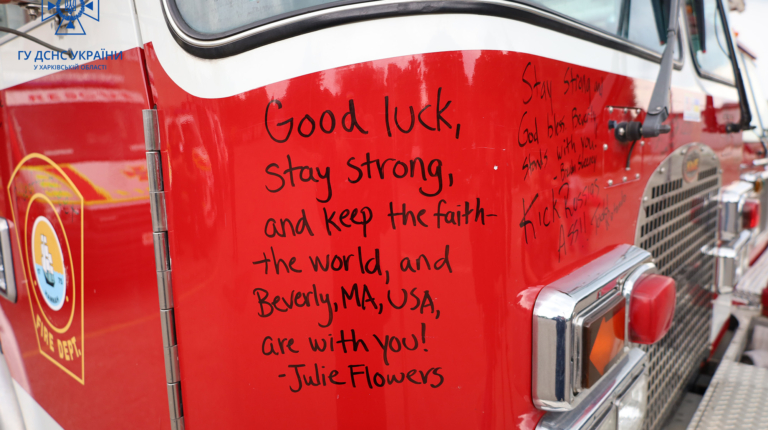 ГУ ДСНС УКРАЇНИ
У ХАРКІВСЬКІЙ ОБЛАСТІ
Good luck,
stay strong,
and keep the faith-
the world, and
Beverly, MA, USA,
are with you!
-Julie Flowers
Stay Strong
God bless
with you!
Kick
Ass!!
FIRE DEPT.